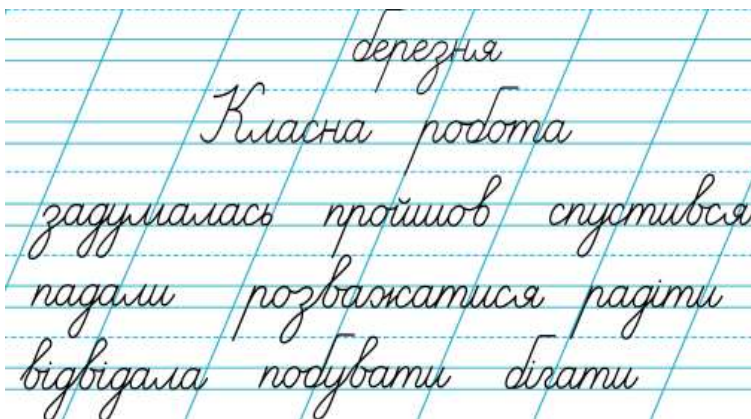 березня
Класна робота
задумалась пройшов спустився
падали розважатися радіти
відвідала побувати бігати